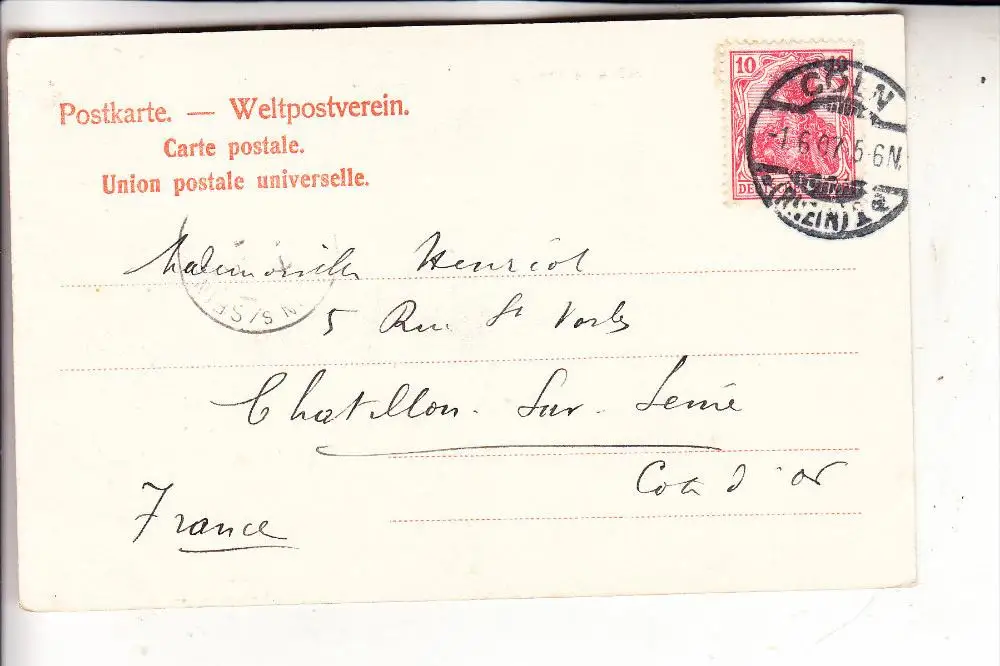 Postkarte. — Weltpostverein.
Carte postale.
Union postale universelle.
10 10
CÖLN
-1.6.07. 5-6N.
(RHEIN) 1
Mademoiselle Henriot
5 Rue St Vorles
Chatillon-Sur-Seine
Cote d'or
France